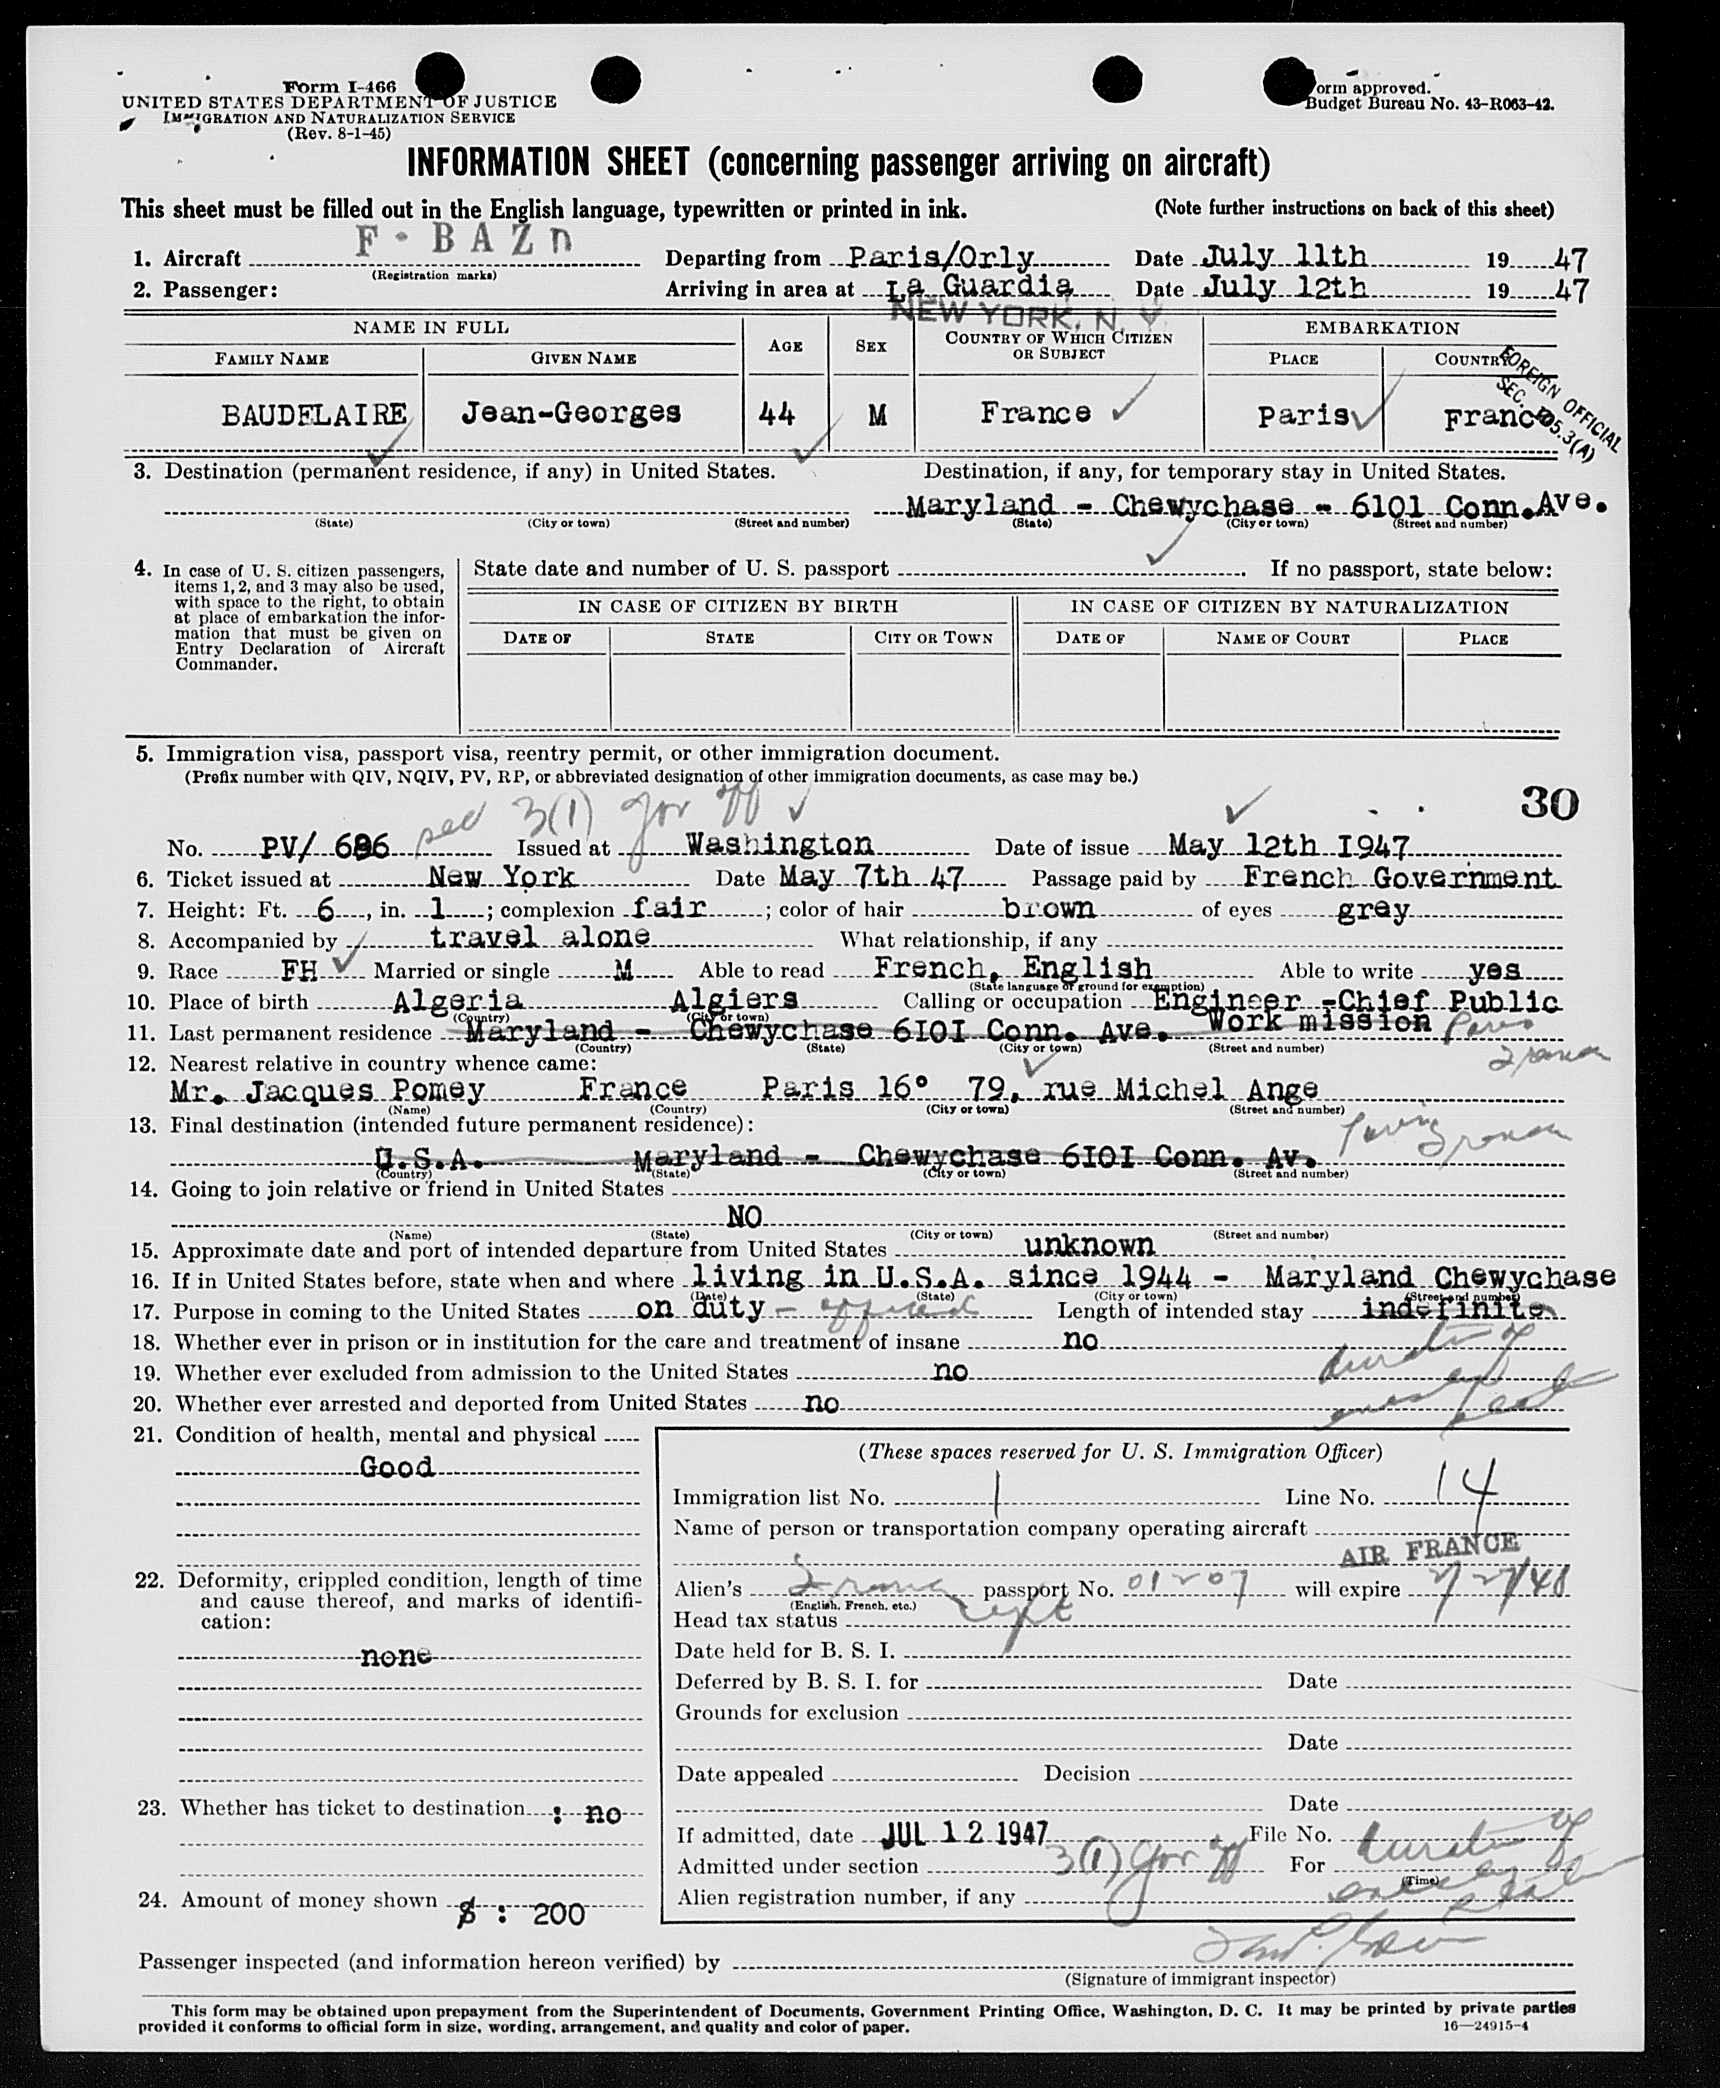 Form I-466
UNITED STATES DEPARTMENT OF JUSTICE
IMMIGRATION AND NATURALIZATION SERVICE
(Rev. 8-1-45)
Form approved.
Budget Bureau No. 43-R063-42.
INFORMATION SHEET (concerning passenger arriving on aircraft)
This sheet must be filled out in the English language, typewritten or printed in ink. (Note further instructions on back of this sheet)
1. Aircraft F-BAZD Departing from Paris/Orly Date July 11th 1947
(Registration marks)
2. Passenger: Arriving in area at La Guardia Date July 12th 1947
NEW YORK, N. Y.
NAME IN FULL AGE SEX COUNTRY OF WHICH CITIZEN OR SUBJECT EMBARKATION
FAMILY NAME GIVEN NAME PLACE COUNTRY
FOREIGN OFFICIAL
BAUDELAIRE Jean-Georges 44 M France Paris France
3. Destination (permanent residence, if any) in United States. Destination, if any, for temporary stay in United States.
Maryland - Chewychase - 6101 Conn.Ave.
(State) (City or town) (Street and number) (State) (City or town) (Street and number)
4. In case of U. S. citizen passengers, items 1, 2, and 3 may also be used, with space to the right, to obtain at place of embarkation the information that must be given on Entry Declaration of Aircraft Commander.
State date and number of U. S. passport . If no passport, state below:
IN CASE OF CITIZEN BY BIRTH IN CASE OF CITIZEN BY NATURALIZATION
DATE OF STATE CITY OR TOWN DATE OF NAME OF COURT PLACE
5. Immigration visa, passport visa, reentry permit, or other immigration document.
(Prefix number with QIV, NQIV, PV, RP, or abbreviated designation of other immigration documents, as case may be.)
sec 3(1) gov off 30
No. PV/ 686 Issued at Washington Date of issue May 12th I947
6. Ticket issued at New York Date May 7th 47 Passage paid by French Government
7. Height: Ft. 6, in. 1; complexion fair; color of hair brown of eyes grey
8. Accompanied by travel alone What relationship, if any
9. Race FH Married or single M Able to read French, English Able to write yes
(State language or ground for exemption)
10. Place of birth Algeria Algiers Calling or occupation Engineer -Chief Public
(Country) (City or town) Work mission
11. Last permanent residence Maryland - Chewychase 6I0I Conn. Ave. Paris
(Country) (State) (City or town) (Street and number) France
12. Nearest relative in country whence came:
Mr. Jacques Pomey France Paris 16° 79, rue Michel Ange
(Name) (Country) (City or town) (Street and number)
13. Final destination (intended future permanent residence): Paris France
U.S.A. Maryland - Chewychase 6I0I Conn. Av.
(Country) (State) (City or town) (Street and number)
14. Going to join relative or friend in United States
NO
(Name) (State) (City or town) (Street and number)
15. Approximate date and port of intended departure from United States unknown
16. If in United States before, state when and where living in U.S.A. since 1944 - Maryland Chewychase
(Date) (State) (City or town) (Street and number)
17. Purpose in coming to the United States on duty - official Length of intended stay indefinite
18. Whether ever in prison or in institution for the care and treatment of insane no duration of
19. Whether ever excluded from admission to the United States no
20. Whether ever arrested and deported from United States no
21. Condition of health, mental and physical
Good
22. Deformity, crippled condition, length of time and cause thereof, and marks of identification:
none
23. Whether has ticket to destination : no
24. Amount of money shown $ : 200
(These spaces reserved for U. S. Immigration Officer)
Immigration list No. 1 Line No. 14
Name of person or transportation company operating aircraft
AIR FRANCE
Alien's France passport No. 01207 will expire 2/27/48
(English, French, etc.)
Head tax status
Date held for B. S. I.
Deferred by B. S. I. for Date
Grounds for exclusion
Date
Date appealed Decision
Date
If admitted, date JUL 12 1947 File No.
Admitted under section 3(1) gov off For duration of
(Time)
Alien registration number, if any
Passenger inspected (and information hereon verified) by
(Signature of immigrant inspector)
This form may be obtained upon prepayment from the Superintendent of Documents, Government Printing Office, Washington, D. C. It may be printed by private parties
provided it conforms to official form in size, wording, arrangement, and quality and color of paper. 16—24915-4